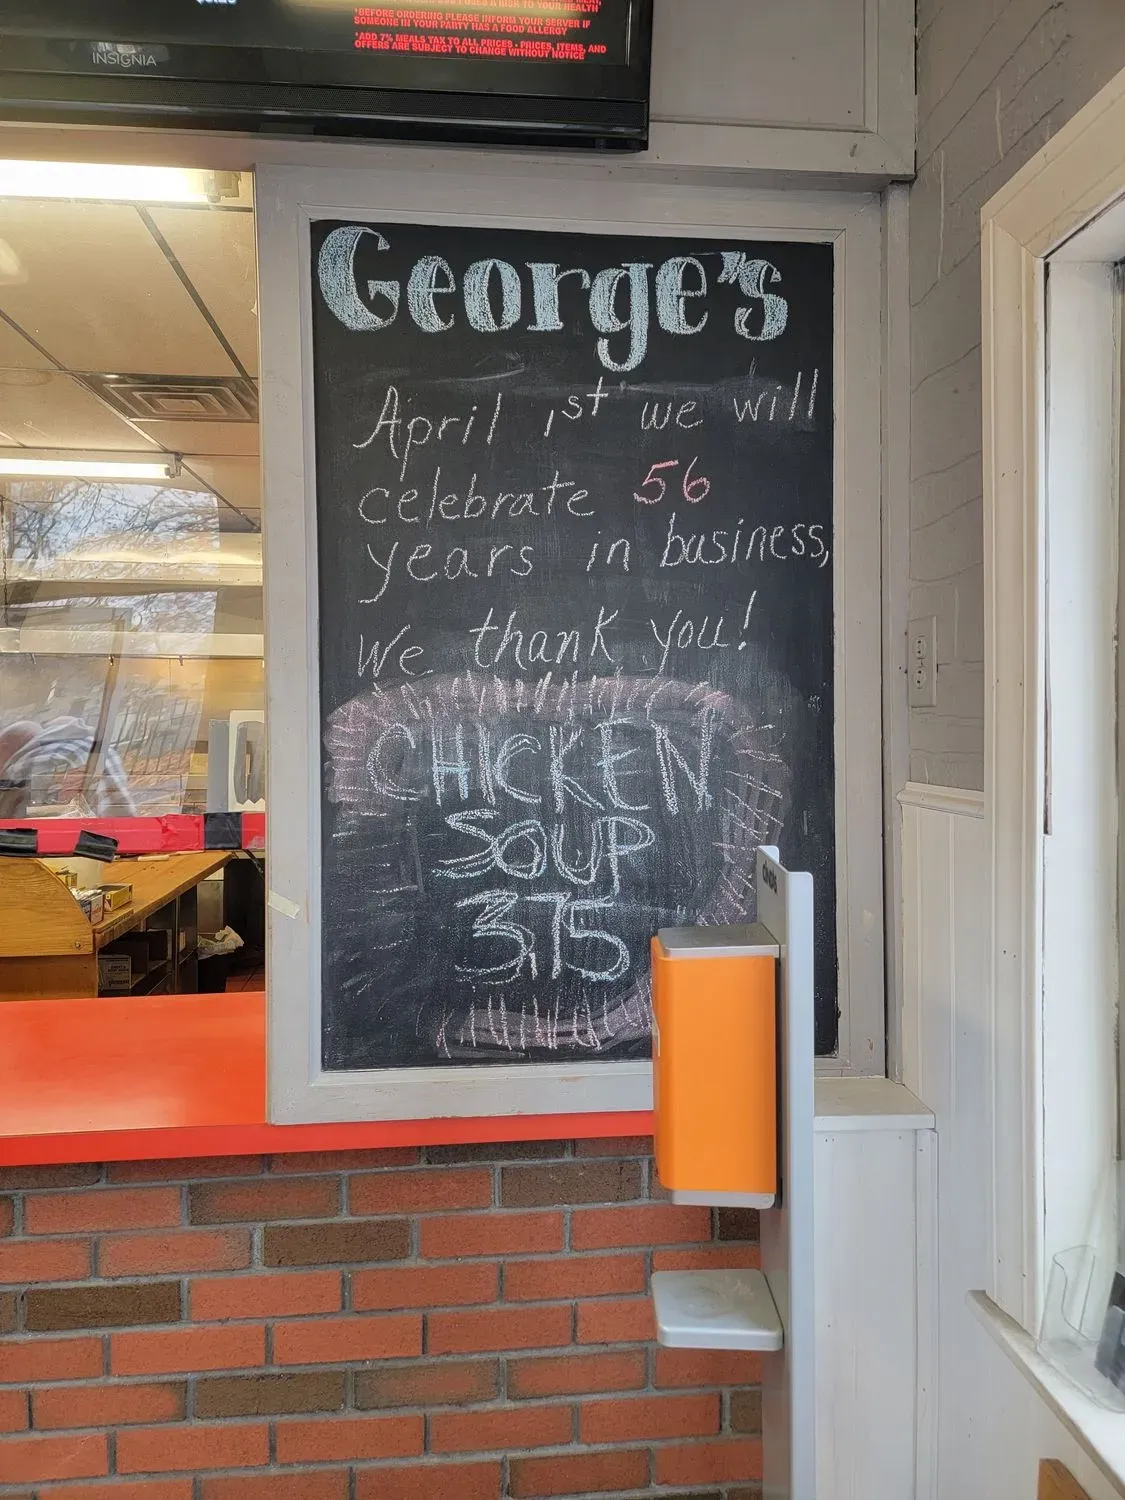 *BEFORE ORDERING PLEASE INFORM YOUR SERVER IF
SOMEONE IN YOUR PARTY HAS A FOOD ALLERGY
*ADD 7% MEALS TAX TO ALL PRICES - PRICES, ITEMS, AND
OFFERS ARE SUBJECT TO CHANGE WITHOUT NOTICE
INSIGNIA
George's
April 1st we will
celebrate 56
years in business,
We thank you!
CHICKEN
SOUP
3.75